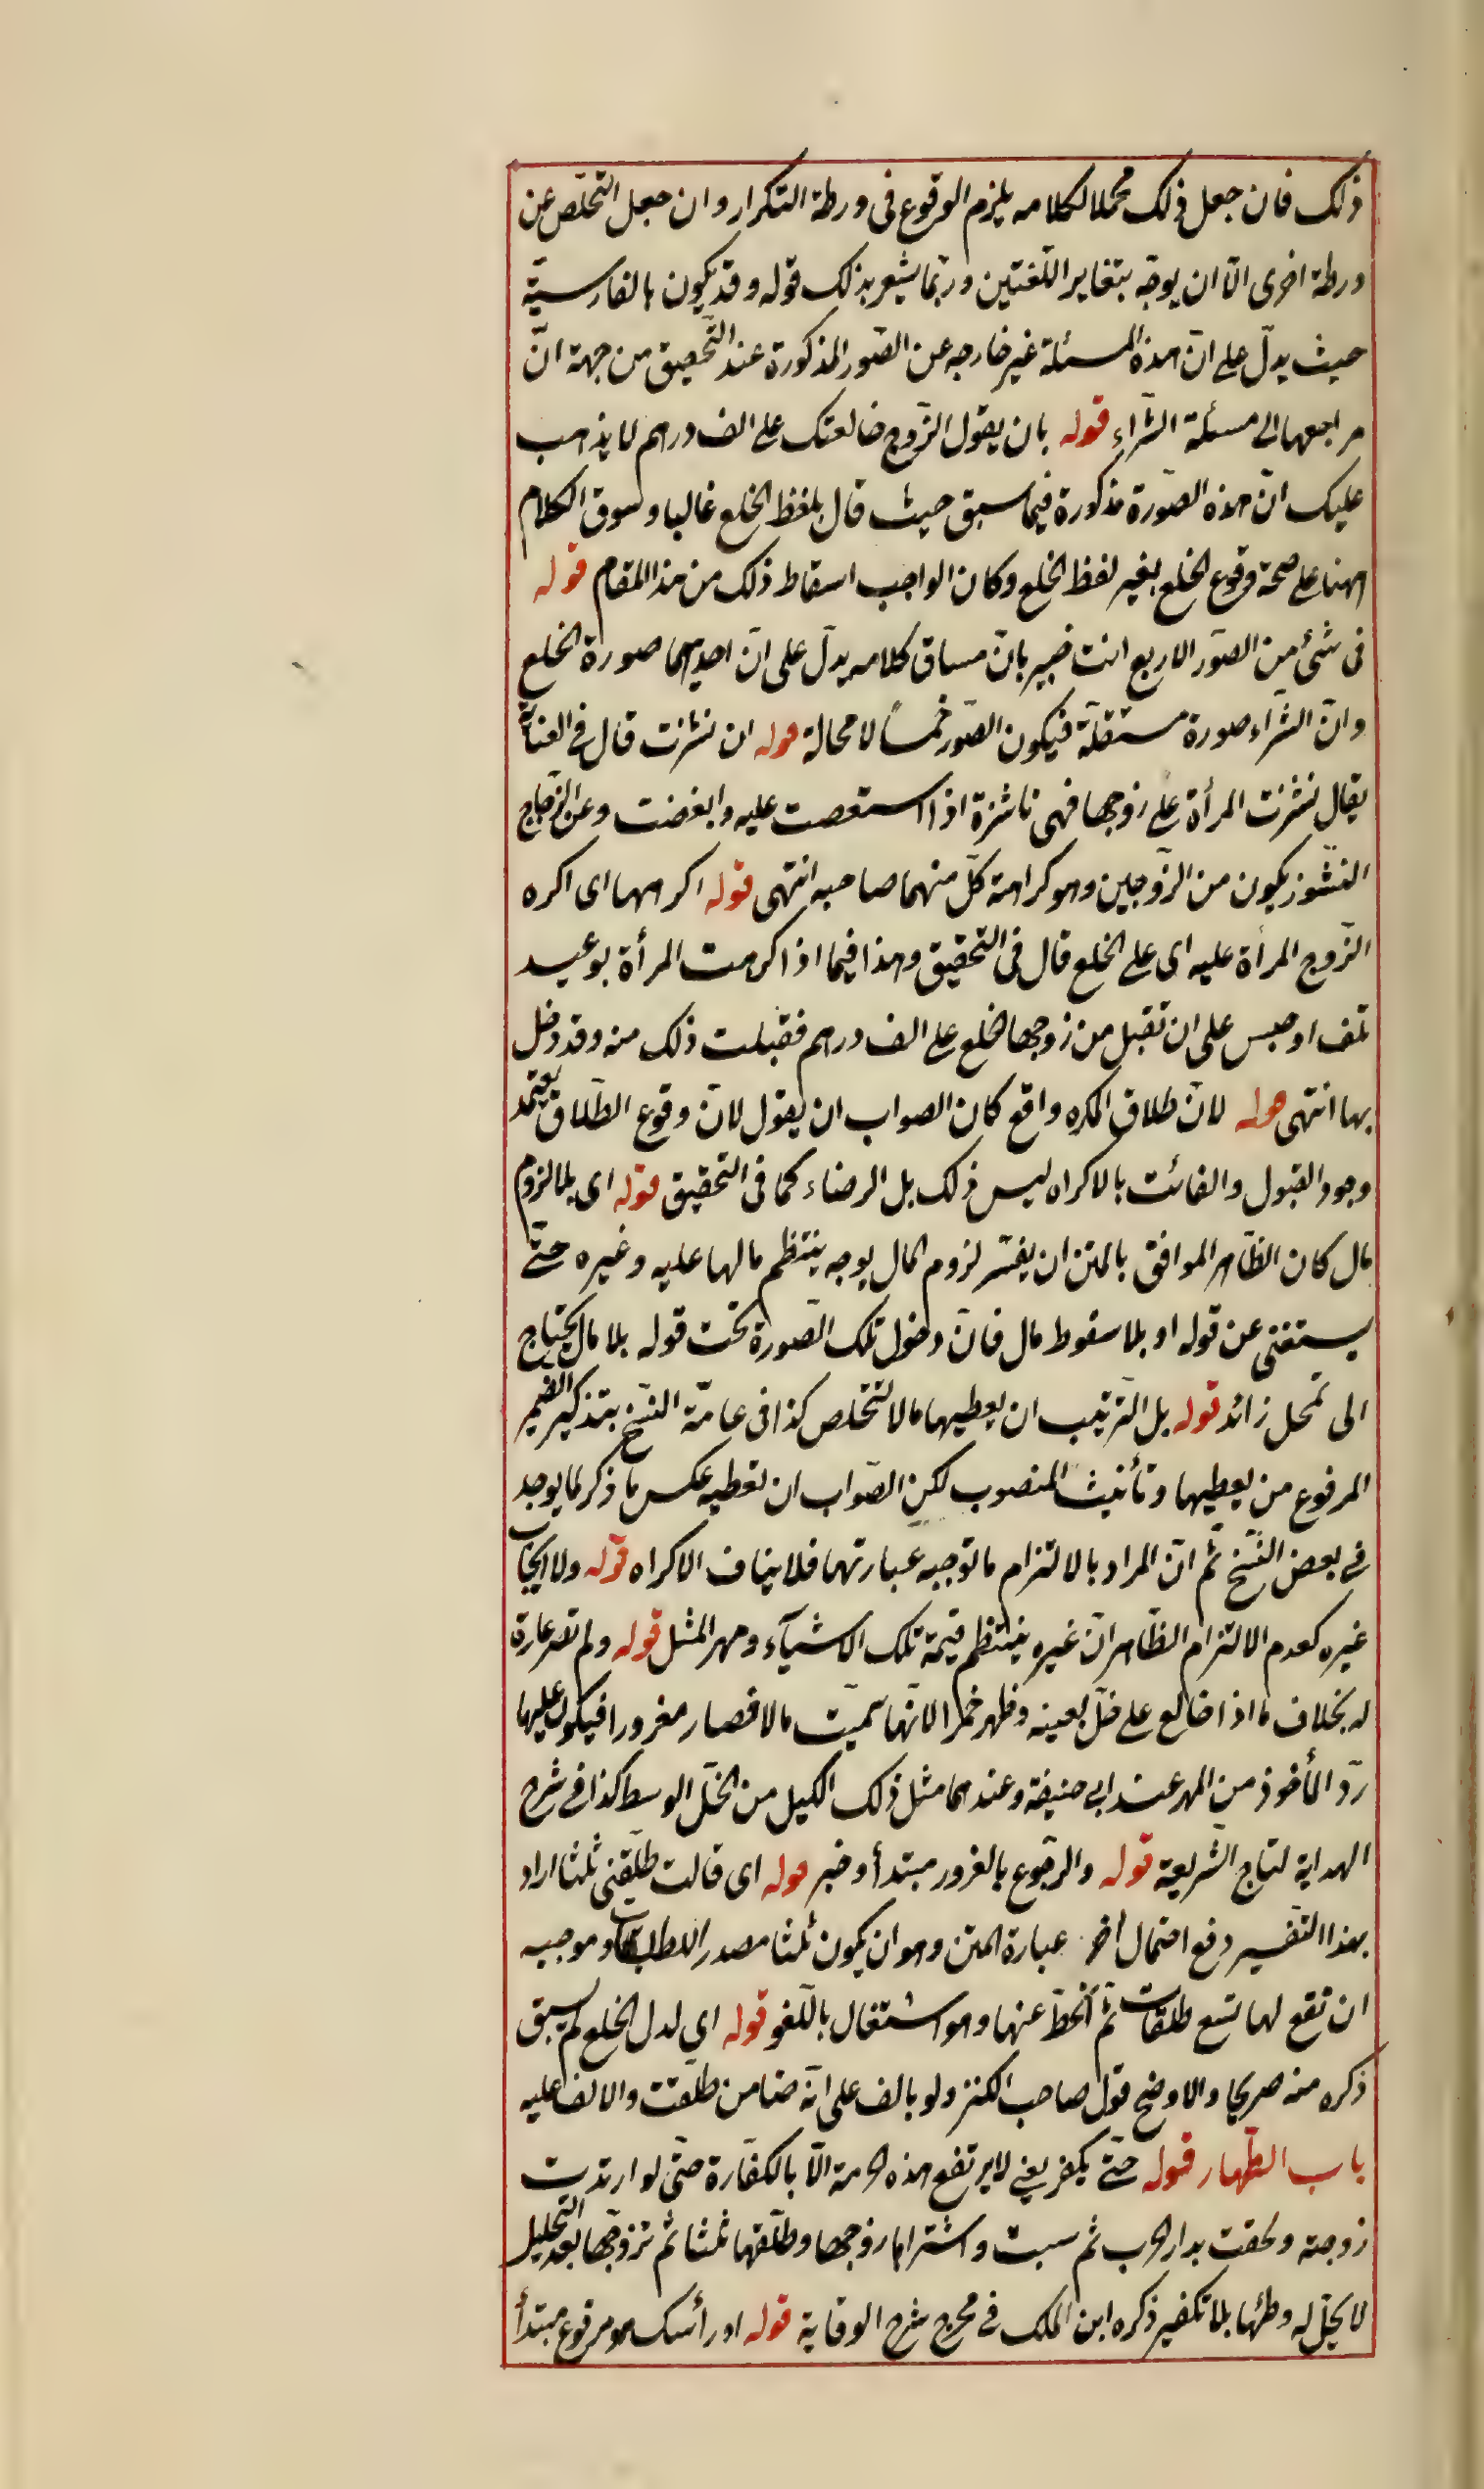 ذلك فان جعل ذلك محملا لكلامه يلزم الوقوع فى ورطة التكرار وان جعل التخلّص عن
ورطة اخرى الّا ان يوجّه بتغاير اللّغتين وربّما يشعر بذلك قوله وقد يكون بالفارسيّة
حيث يدلّ على انّ هذه المسئلة غير خارجه عن الصّور المذكورة عند التّحقيق من جهة انّ
مراجعها الى مسئلة الشّراء قوله بان يقول الزّوج خالعتك على الف درهم لا يذهب
عليك انّ هذه الصّورة مذكورة فيما سبق حيث قال بلفظ الخلع غالبا وسوق الكلام
ههنا على صحة وقوع الخلع بغير لفظ الخلع وكان الواجب اسقاط ذلك من هذا المقام قوله
فى شئ من الصّور الاربع انت خبير بانّ مساق كلامه يدلّ على انّ احديهما صورة الخلع
وانّ الشّراء صورة مستقلّة فيكون الصّور خمسًا لا محالة قوله ان نشزت قال فى العناية
يقال نشزت المرأة على زوجها فهى ناشزة اذا استعصت عليه وابغضت وعن الزّجاج
النّشوز يكون من الزّوجين وهو كراهة كلّ منهما صاحبه انتهى قوله اكرهها اى اكره
الزّوج المرأة عليه اى على الخلع قال فى التّحقيق وهذا فيما اذا كرهت المرأة بوعيد
تلف او حبس على ان تقبل من زوجها الخلع على الف درهم فقبلت ذلك منه وقد دخل
بها انتهى قوله لانّ طلاق المكره واقع كان الصواب ان يقول لانّ وقوع الطّلاق يعتمد
وجود القبول والفائت بالاكراه ليس ذلك بل الرضاء كما فى التّحقيق قوله اى بلا لزوم
مال كان الظّاهر الموافق بالمتن ان يفسّر لزوم المال بوجه ينتظم مالها عليه وغيره حتّى
يستغنى عن قوله او بلا سقوط مال فانّ دخول تلك الصّورة تحت قوله بلا مال يحتاج
الى تمحل زائد قوله بل التّرتيب ان يعطيها مالا لتتخلص كذا فى عامّة النّسخ بتذكير الضّمير
المرفوع من يعطيها وتأنيث المنصوب لكن الصّواب ان تعطيه عكس ما ذكر كما يوجد
فى بعض النّسخ ثم انّ المراد بالالتزام ما توجبه عبارتهما فلا يناف الاكراه قوله ولا ايجاب
غيره كعدم الالتزام الظّاهر انّ غيره ينتظم قيمة تلك الاشيآء ومهر المثل قوله ولم تصر غارة
له بخلاف ما اذا خالع على خلّ بعينه وظهر خمرا لانّها سمّيت مالا فصار مغرورا فيكون عليها
ردّ المأخوذ من المهر عند ابى حنيفة وعندهما مثل ذلك الكيل من الخلّ الوسط كذا فى شرح
الهداية لتاج الشّريعة قوله والرّجوع بالغرور مبتدأ وخبر قوله اى قالت طلّقنى ثلثا اراد
بهذا التّفسير دفع احتمال آخر عبارة المتن وهو ان يكون ثلثا مصدر وموجبه
ان تقع لها تسع طلقات ثم انحطّ عنها وهو اشتغال باللّغو قوله اى لدل الخلع لم يسبق
ذكره منه صريحا والاوضح قول صاحب الكنز ولو بالف على انّه ضامن طلّقت والالف عليه
باب الظّهار قوله حتّى يكفر يعنى لا يرتفع هذه الحرمة الّا بالكفّارة حتّى لو ارتدت
زوجته ولحقت بدار الحرب ثم سبت واشتراها زوجها وطلّقها ثلثا ثم تزوّجها بعد التّحليل
لا يحلّ له وطئها بلا تكفير ذكره ابن الملك فى شرح الوقاية قوله او رأسك هو مرفوع مبتدأ